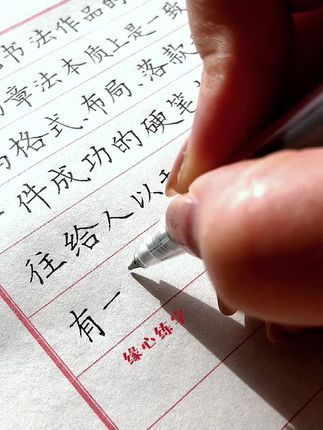 书法作品的
章法本质上是一致
格式、布局、落款
件成功的硬笔
往给人以
有一
缘心练字